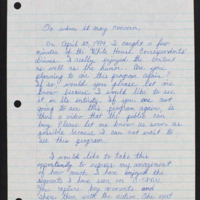 To whom it may concern,
On April 29, 1999, I caught a few
minutes of the White House Correspondents'
dinner. I really enjoyed the
as well as the humor. Are you
planning to air this program again?
If so, would you please let me
know because I would like to see
it in its entirety. If you are not
going to see this program again, is
there a video that the public can
buy. Please let me know as soon as
possible because I can not wait to
see this program.
I would like to take this
opportunity to express my amazement
of how much I have enjoyed the
segments I have seen on
You capture key moments and
share them with the nation. The next